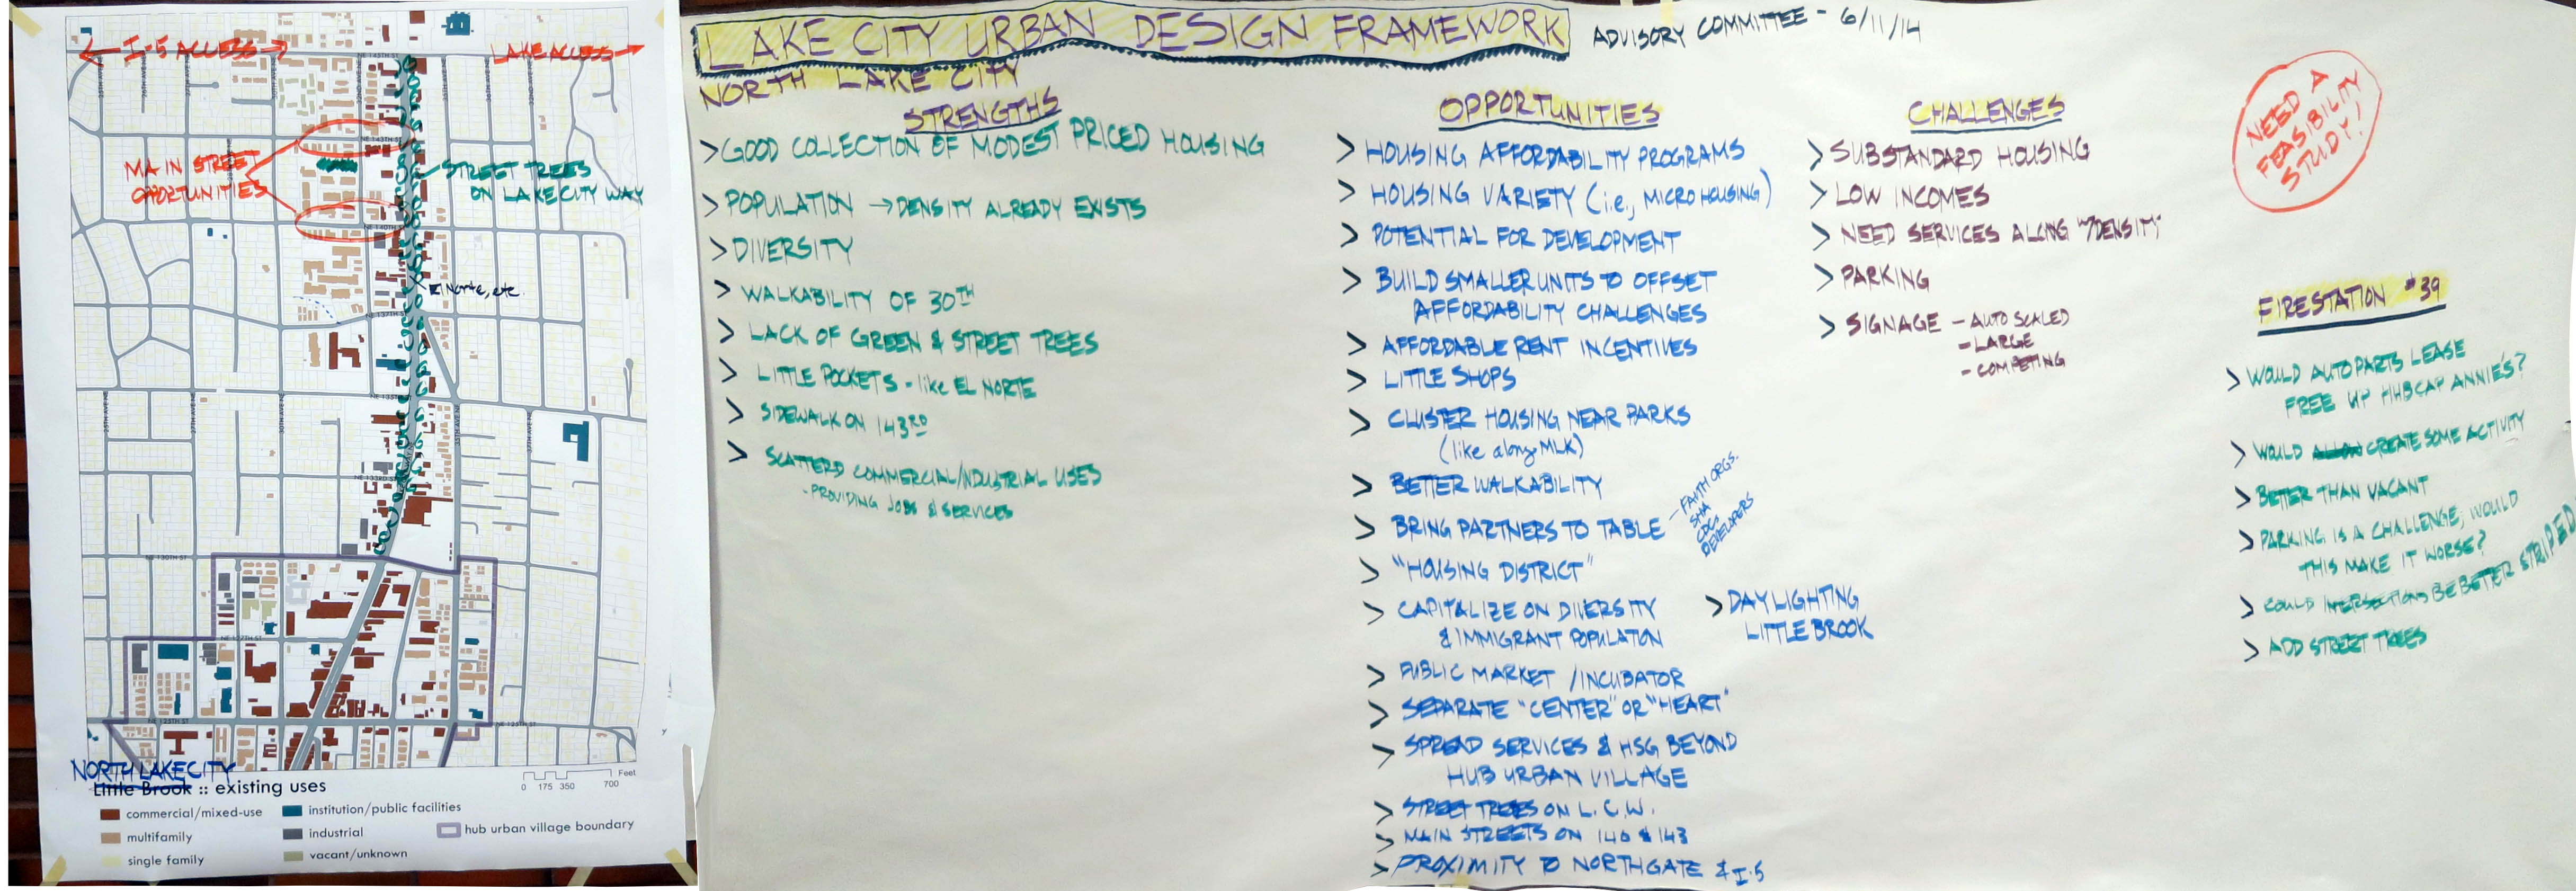 ← I-5 ACCESS →
LAKE ACCESS →
MAIN STREET
OPPORTUNITIES
STREET TREES
ON LAKE CITY WAY
El Norte, etc.
NE 145TH ST
NE 143RD ST
NE 140TH ST
NE 137TH ST
NE 135TH ST
NE 133RD ST
NE 130TH ST
NE 127TH ST
NE 125TH ST
NE 125TH ST
NORTH LAKE CITY
Little Brook :: existing uses
commercial/mixed-use
multifamily
single family
institution/public facilities
industrial
vacant/unknown
hub urban village boundary
Feet
0 175 350 700
LAKE CITY URBAN DESIGN FRAMEWORK
ADVISORY COMMITTEE - 6/11/14
NORTH LAKE CITY
STRENGTHS
> GOOD COLLECTION OF MODEST PRICED HOUSING
> POPULATION → DENSITY ALREADY EXISTS
> DIVERSITY
> WALKABILITY OF 30TH
> LACK OF GREEN & STREET TREES
> LITTLE POCKETS - like EL NORTE
> SIDEWALK ON 143RD
> SCATTERD COMMERCIAL/INDUSTRIAL USES
- PROVIDING JOBS & SERVICES
OPPORTUNITIES
> HOUSING AFFORDABILITY PROGRAMS
> HOUSING VARIETY (i.e., MICRO HOUSING)
> POTENTIAL FOR DEVELOPMENT
> BUILD SMALLER UNITS TO OFFSET
AFFORDABILITY CHALLENGES
> AFFORDABLE RENT INCENTIVES
> LITTLE SHOPS
> CLUSTER HOUSING NEAR PARKS
(like along MLK)
> BETTER WALKABILITY
> BRING PARTNERS TO TABLE
- FAITH ORGS.
SHA
CDCs
DEVELOPERS
> "HOUSING DISTRICT"
> CAPITALIZE ON DIVERSITY
& IMMIGRANT POPULATION
> DAYLIGHTING
LITTLE BROOK
> PUBLIC MARKET / INCUBATOR
> SEPARATE "CENTER" OR "HEART"
> SPREAD SERVICES & HSG BEYOND
HUB URBAN VILLAGE
> STREET TREES ON L.C.W.
> MAIN STREETS ON 140 & 143
> PROXIMITY TO NORTHGATE & I-5
CHALLENGES
> SUBSTANDARD HOUSING
> LOW INCOMES
> NEED SERVICES ALONG W/DENSITY
> PARKING
> SIGNAGE - AUTO SCALED
- LARGE
- COMPETING
NEED A
FEASIBILITY
STUDY!
FIRESTATION #39
> WOULD AUTO PARTS LEASE
FREE UP HUBCAP ANNIE'S?
> WOULD ALLOW CREATE SOME ACTIVITY
> BETTER THAN VACANT
> PARKING IS A CHALLENGE, WOULD
THIS MAKE IT WORSE?
> COULD INTERSECTIONS BE BETER STRIPED
> ADD STREET TREES